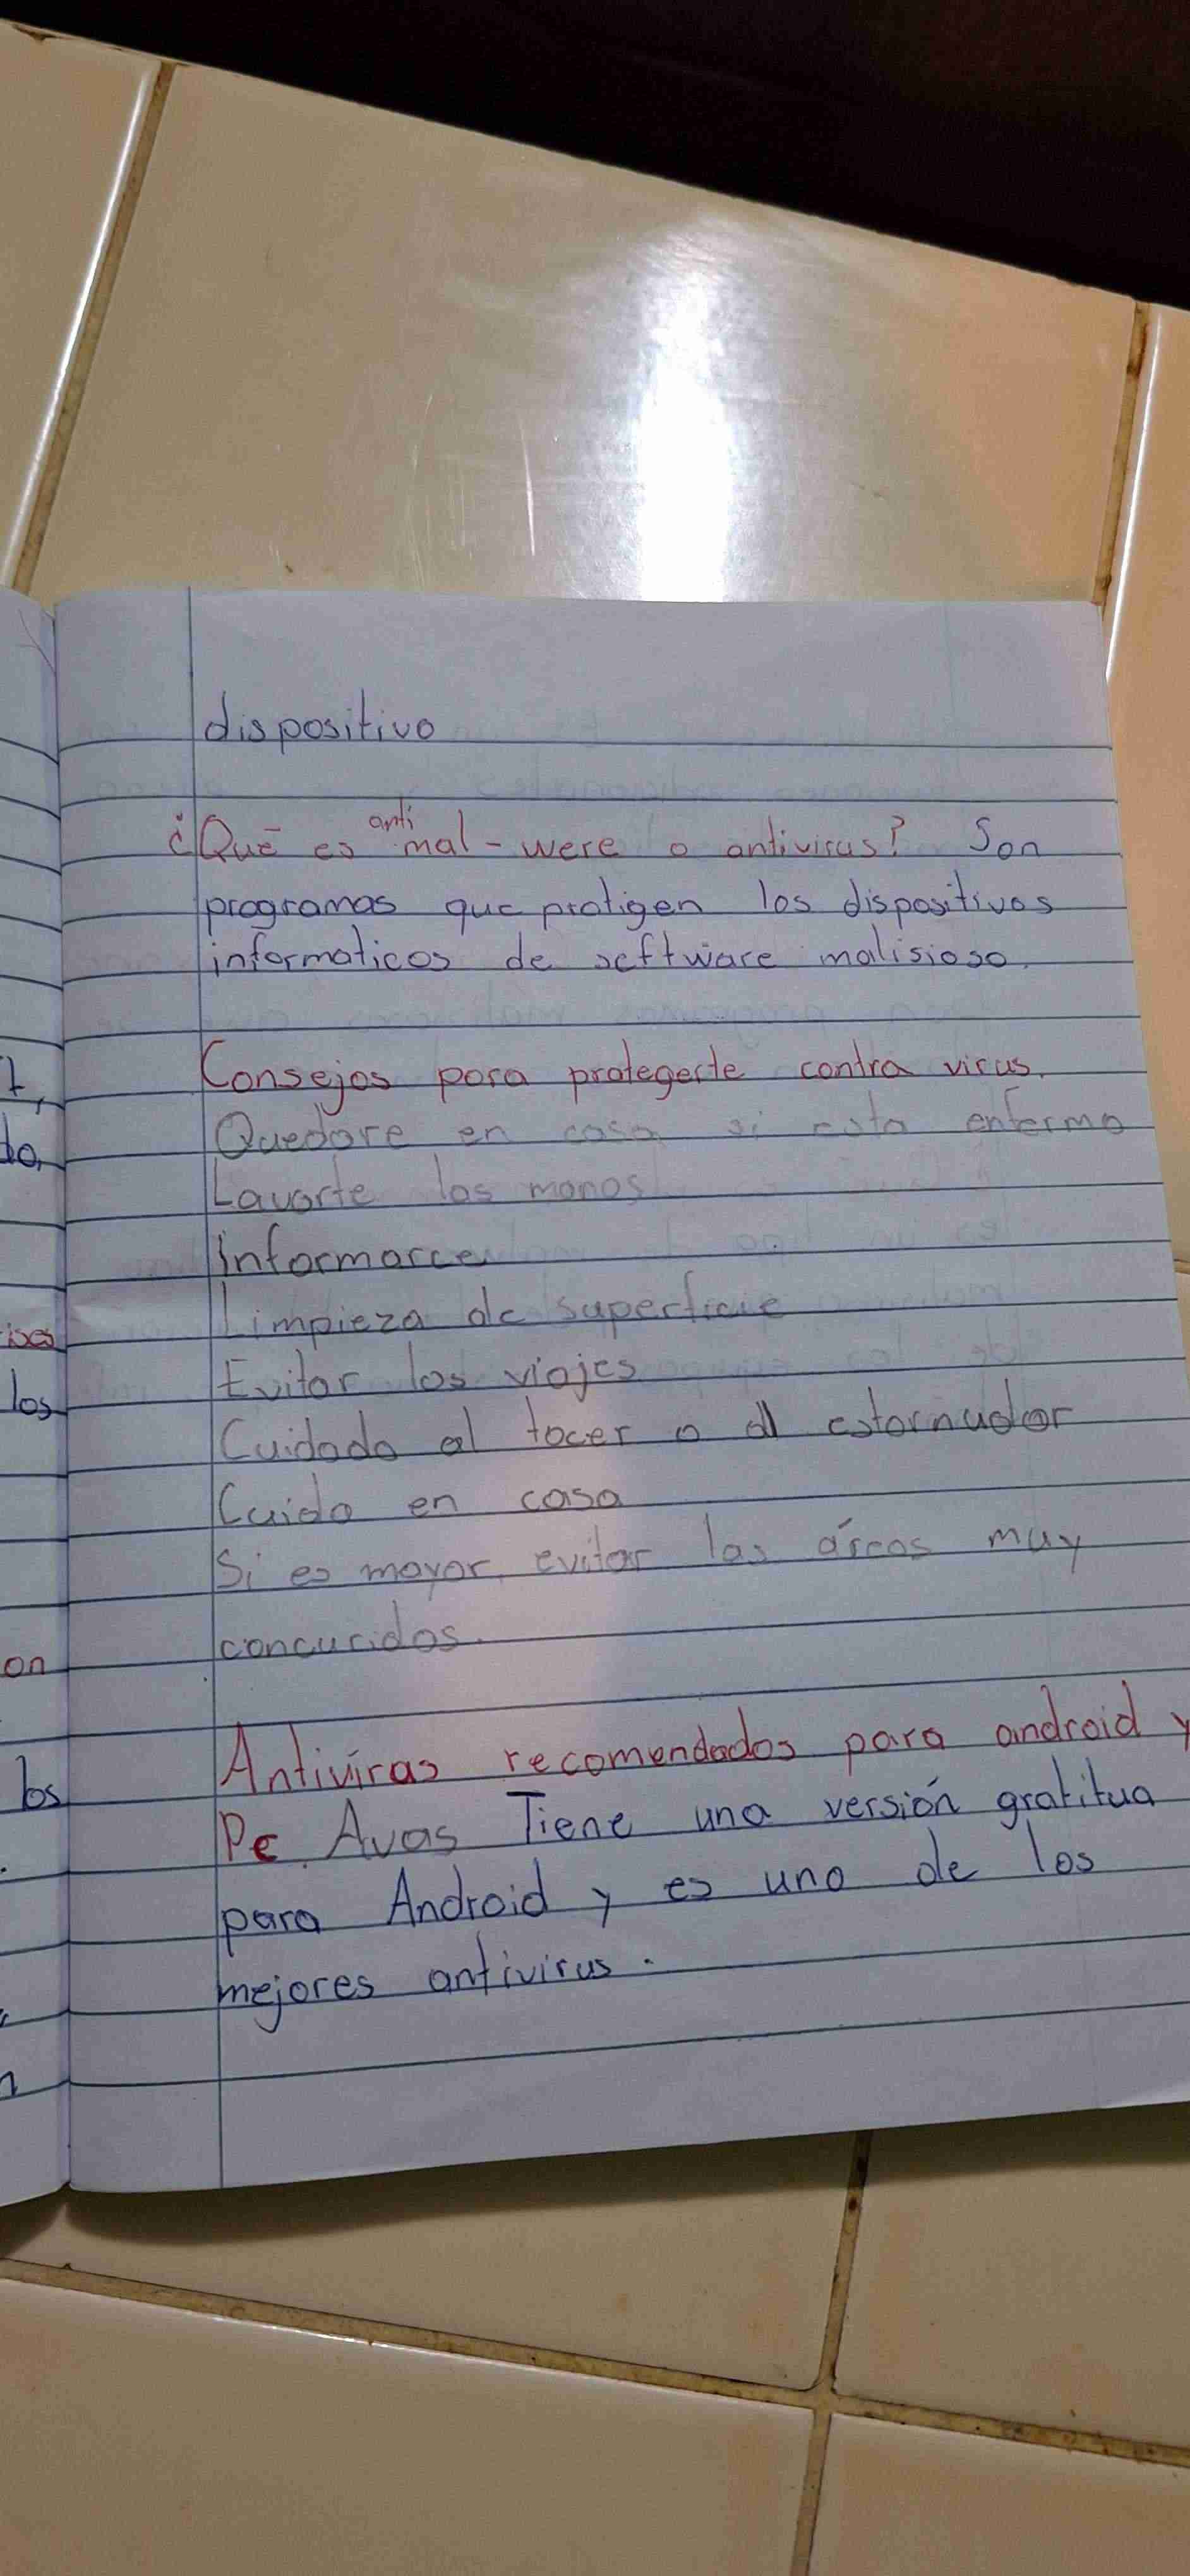 dispositivo
¿Qué es anti mal-were o antivirus? Son
programas que protigen los dispositivos
informaticos de software malisioso.
Consejos para protegerte contra virus.
Quedare en casa si esta enfermo
Lavarte las manos
Informarce
Limpieza de superficie
Evitar los viajes
Cuidado al tocer o al estornudar
Cuido en casa
Si es mayor, evitar las áreas muy
concuridas.
Antiviras recomendados para android y
Pc. Avas Tiene una versión gratitua
para Android y es uno de los
mejores antivirus.
t,
do,
los
on
los